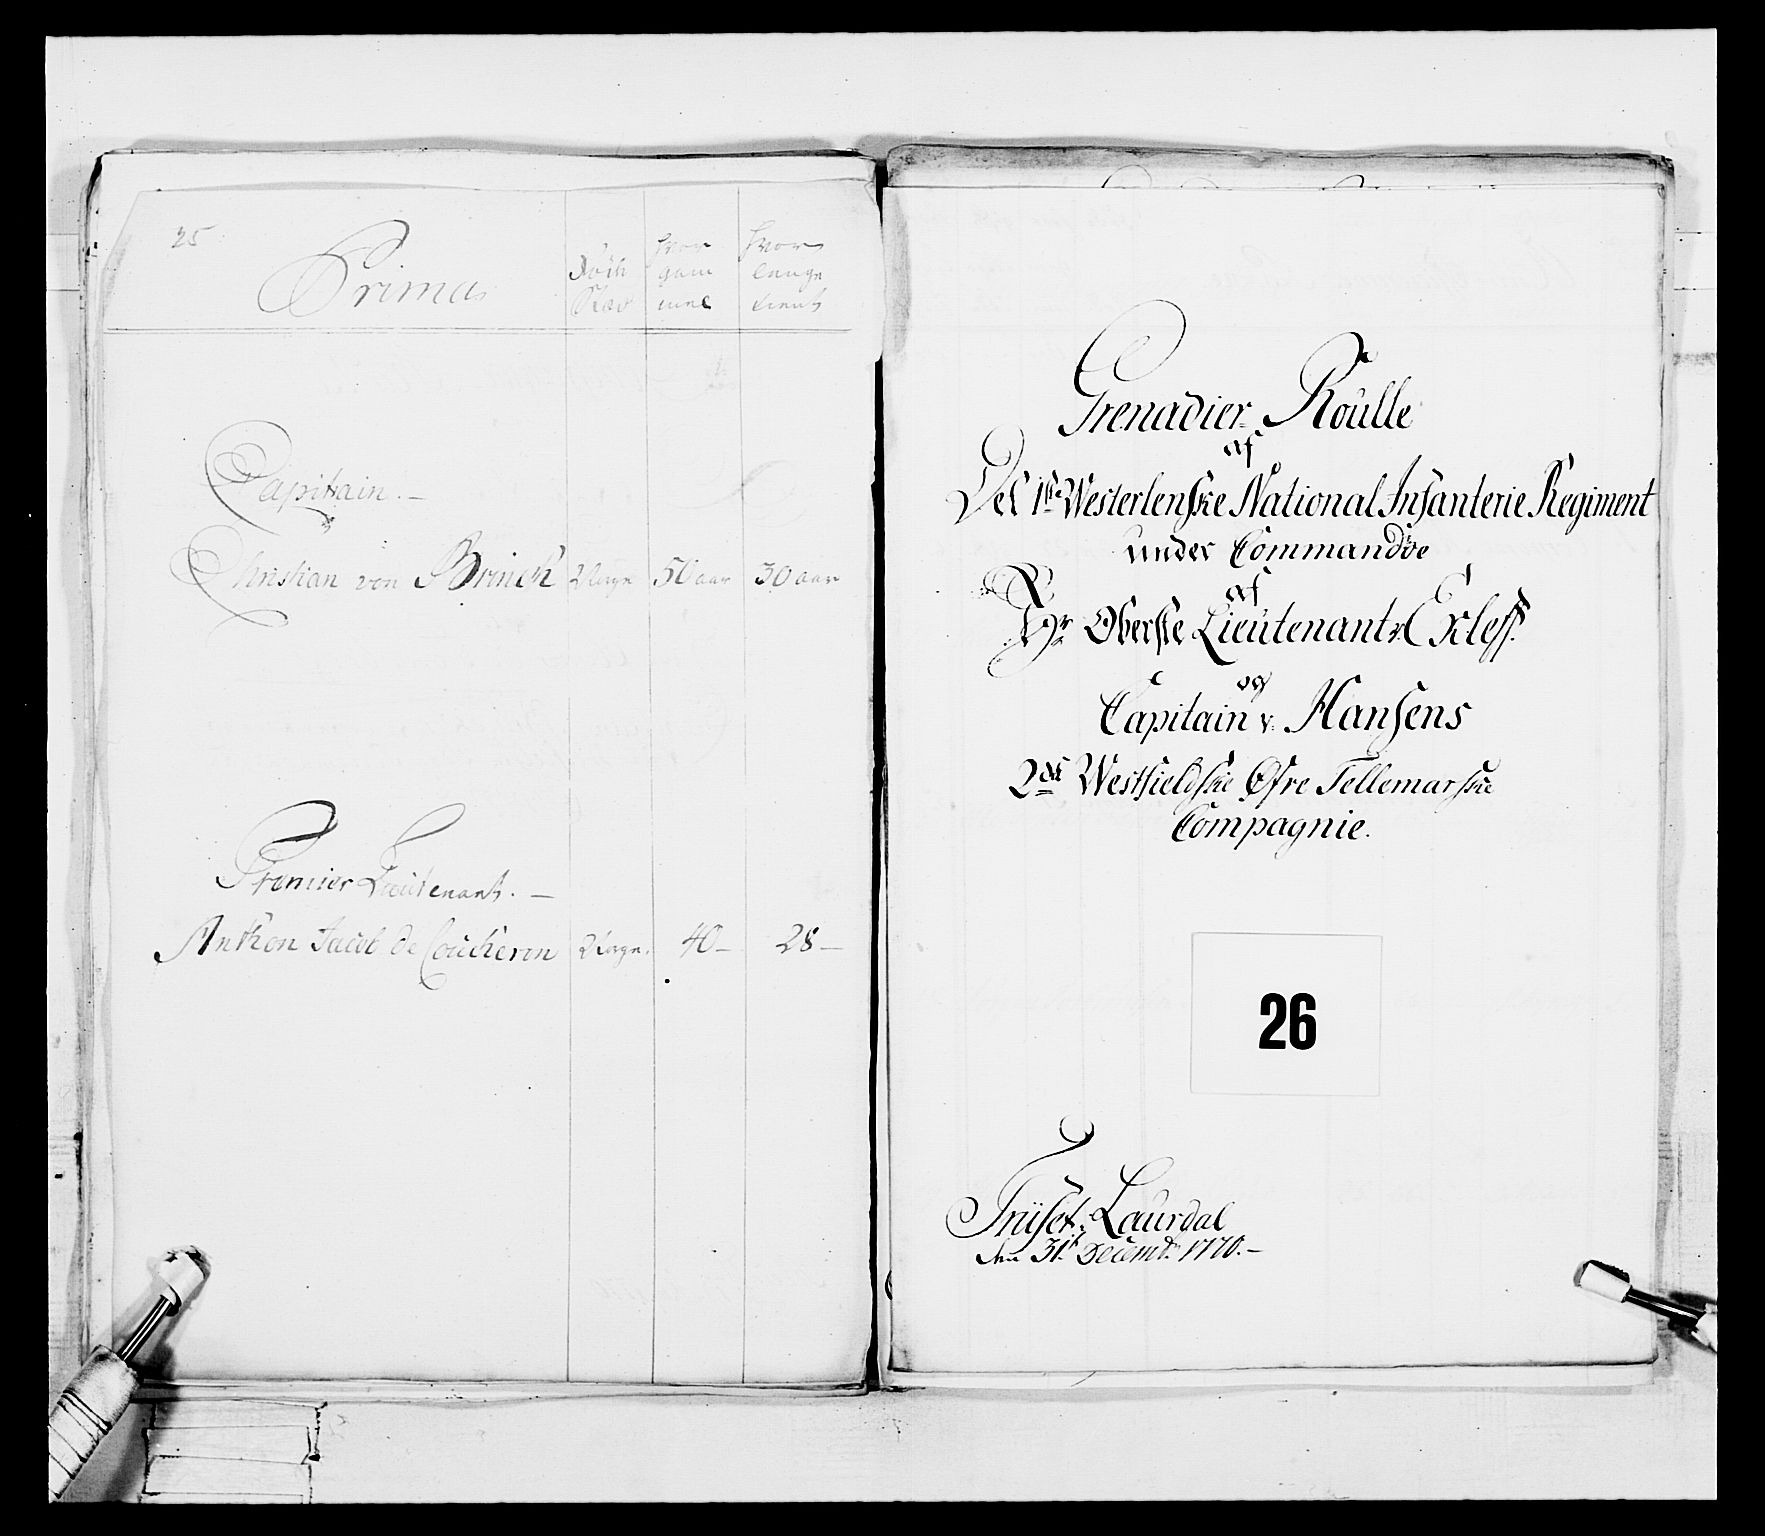 25
Prima
Hvor gam mel
Hvor lenge tient
Capitain. —
Christian von Brinch Norge 50 aar 30 aar
Premier Lieutenant. —
Anthon Jacob de Coucheron Norge. 40 — 28 —
Grenadier Roulle
af
Det 1ste Westerlenske National Infanterie Regiment
under Commandoe
af
Hr Oberste Lieutenant v.
og
Capitain v: Hansens
2det Westfieldske Øfre Tellemarske
Compagnie.
26
Laurdal
den 31t Decembr 1770. —